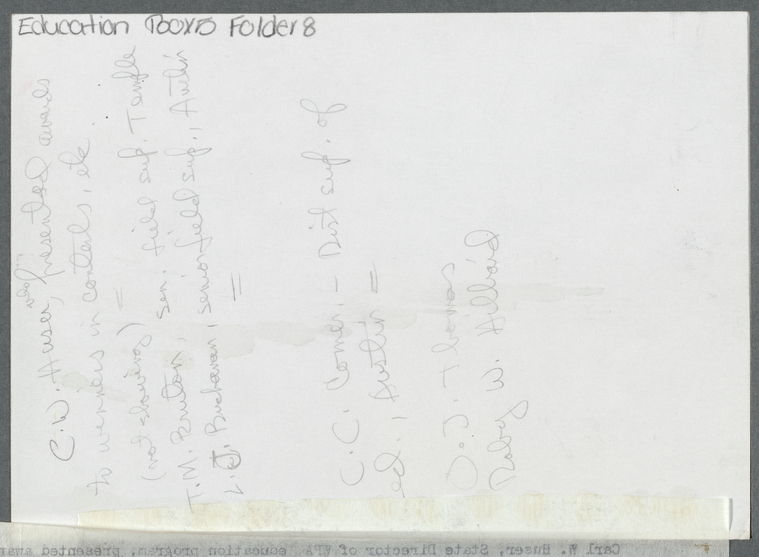 Education Box 5 Folder 8
C.W. Huser, who presented awards
to winners in contests, etc
(not showing) =
T.M. Bruton, sen. field sup. Temple
L.J. Buchanan, senior field sup., Austin
=
C.C. Comer, – Dist sup. of
ed., Austin =
O.J. Thomas
Roby W. Hilliard
Carl W. Huser, State Director of WPA education program, presented awar